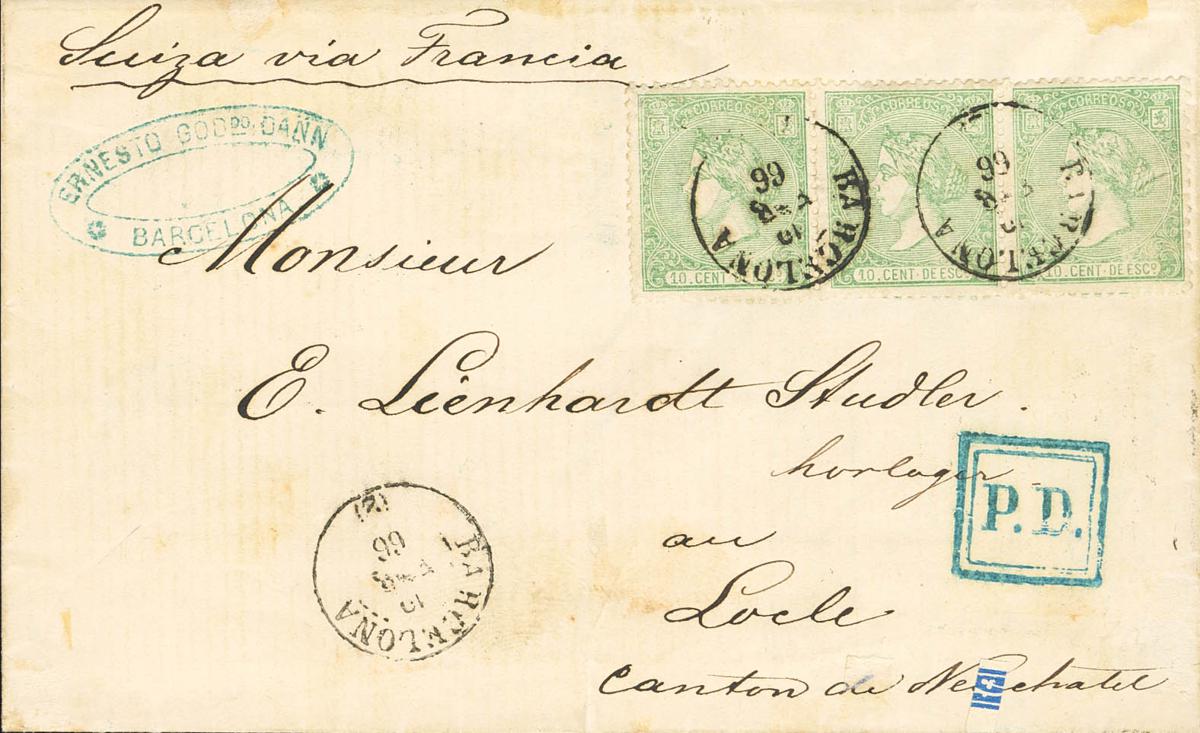 Suiza via Francia
ERNESTO GODDO. DÄNN
BARCELONA
CORREOS
CORREOS
CORREOS
10. CENT. DE ESCO.
10. CENT. DE ESCO.
10. CENT. DE ESCO.
BARCELONA
66
BARCELONA
66
Monsieur
E. Liénhardt Studler.
horloger
P.D.
au
Locle
canton de Neuchatel
BARCELONA
66
(2)